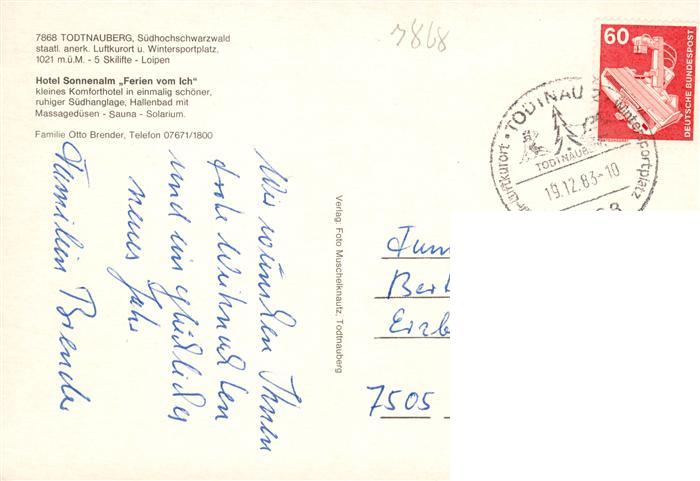 7868
7868 TODTNAUBERG, Südhochschwarzwald
staatl. anerk. Luftkurort u. Wintersportplatz,
1021 m.ü.M. - 5 Skilifte - Loipen
Hotel Sonnenalm „Ferien vom Ich“
kleines Komforthotel in einmalig schöner,
ruhiger Südhanglage, Hallenbad mit
Massagedüsen - Sauna - Solarium.
Familie Otto Brender, Telefon 07671/1800
Wir wünschen Ihnen
frohe Weihnachten
und ein glückliches
neues Jahr
Familien Brender
Verlag: Foto Muschelknautz, Todtnauberg
60
DEUTSCHE BUNDESPOST
TODTNAU
Luftkurort
Wintersportplatz
TODTNAUBERG
19.12.83-10
Fam
Bert
Erzb
7505